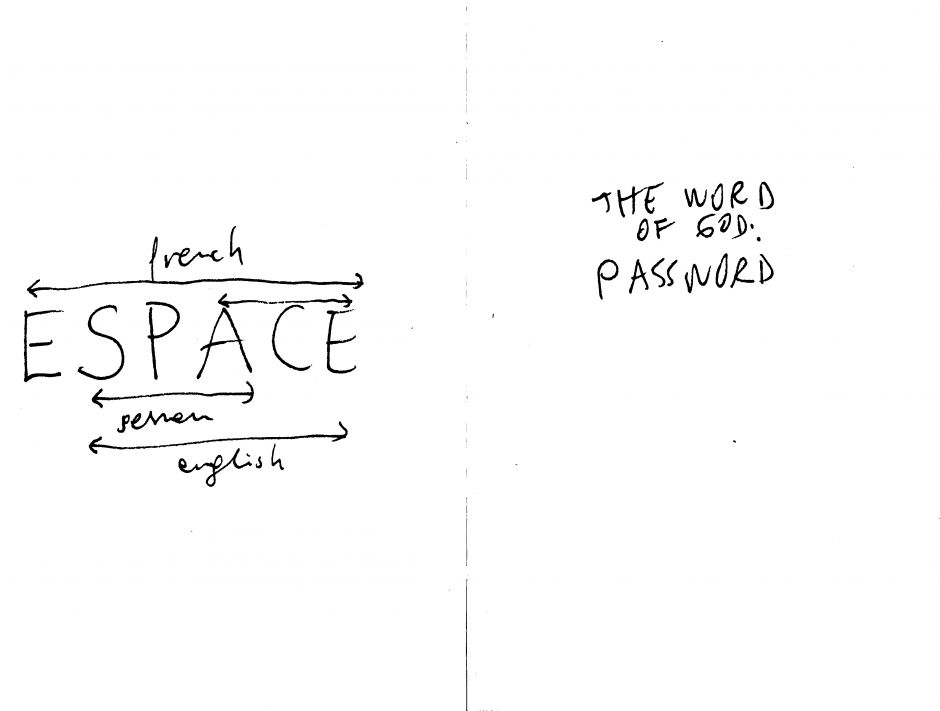 french
ESPACE
german
english
THE WORD
OF GOD:
PASSWORD